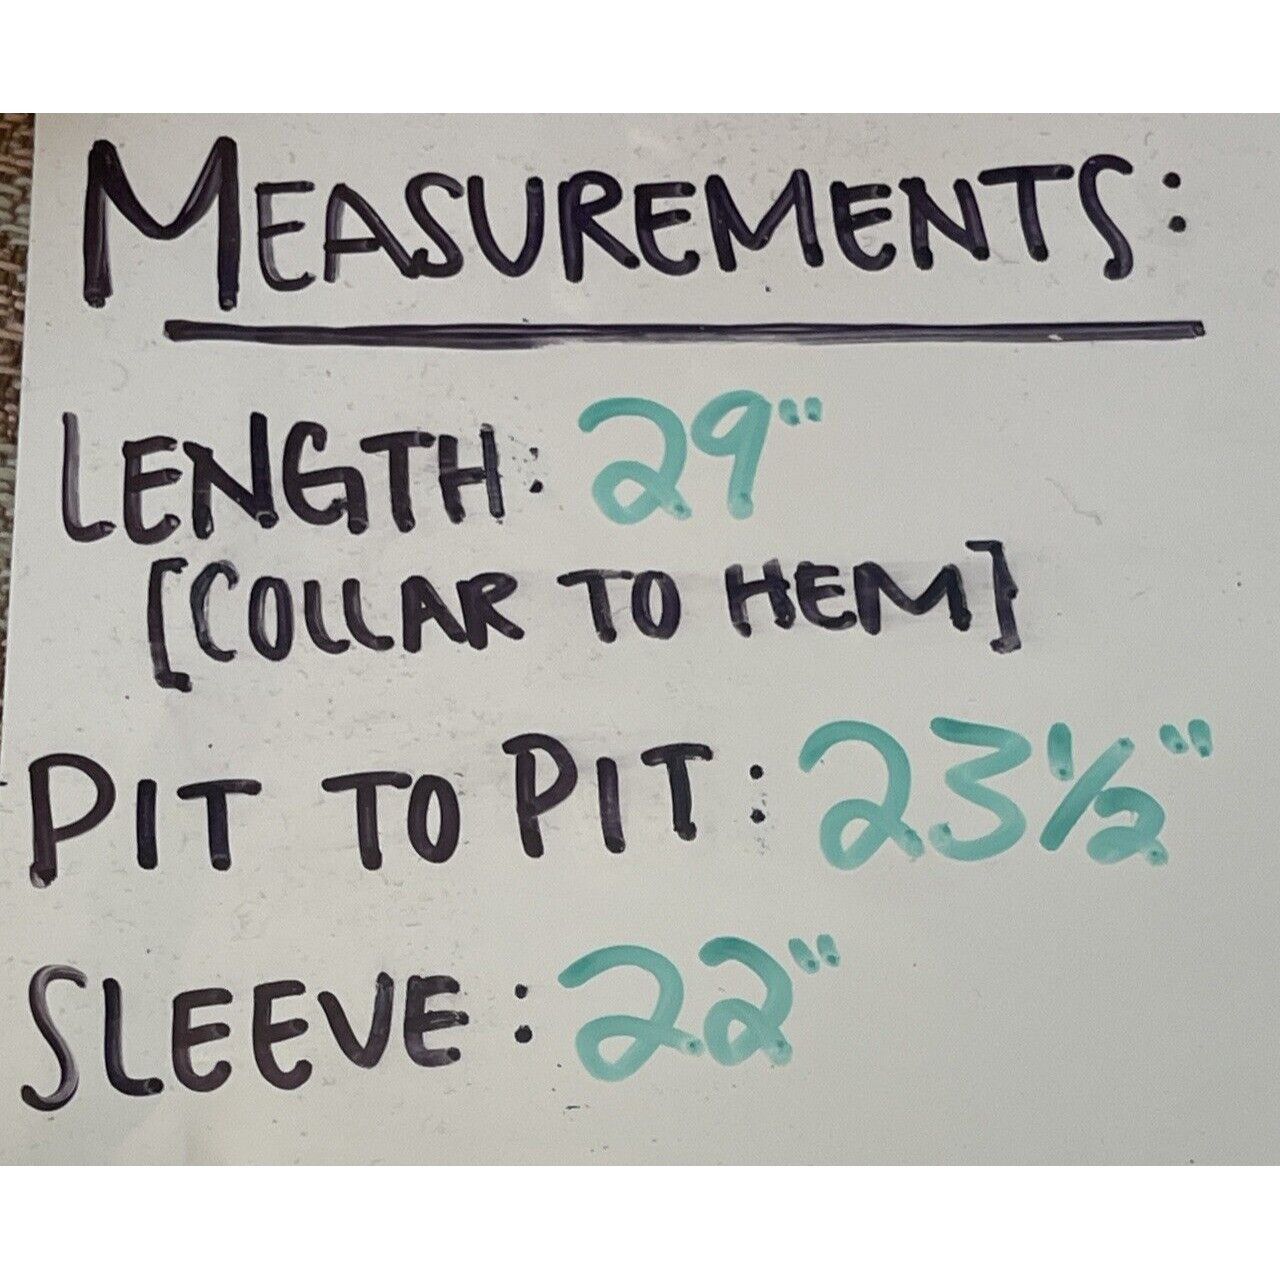 MEASUREMENTS:
LENGTH: 29"
[COLLAR TO HEM]
PIT TO PIT: 23 1/2"
SLEEVE: 22"